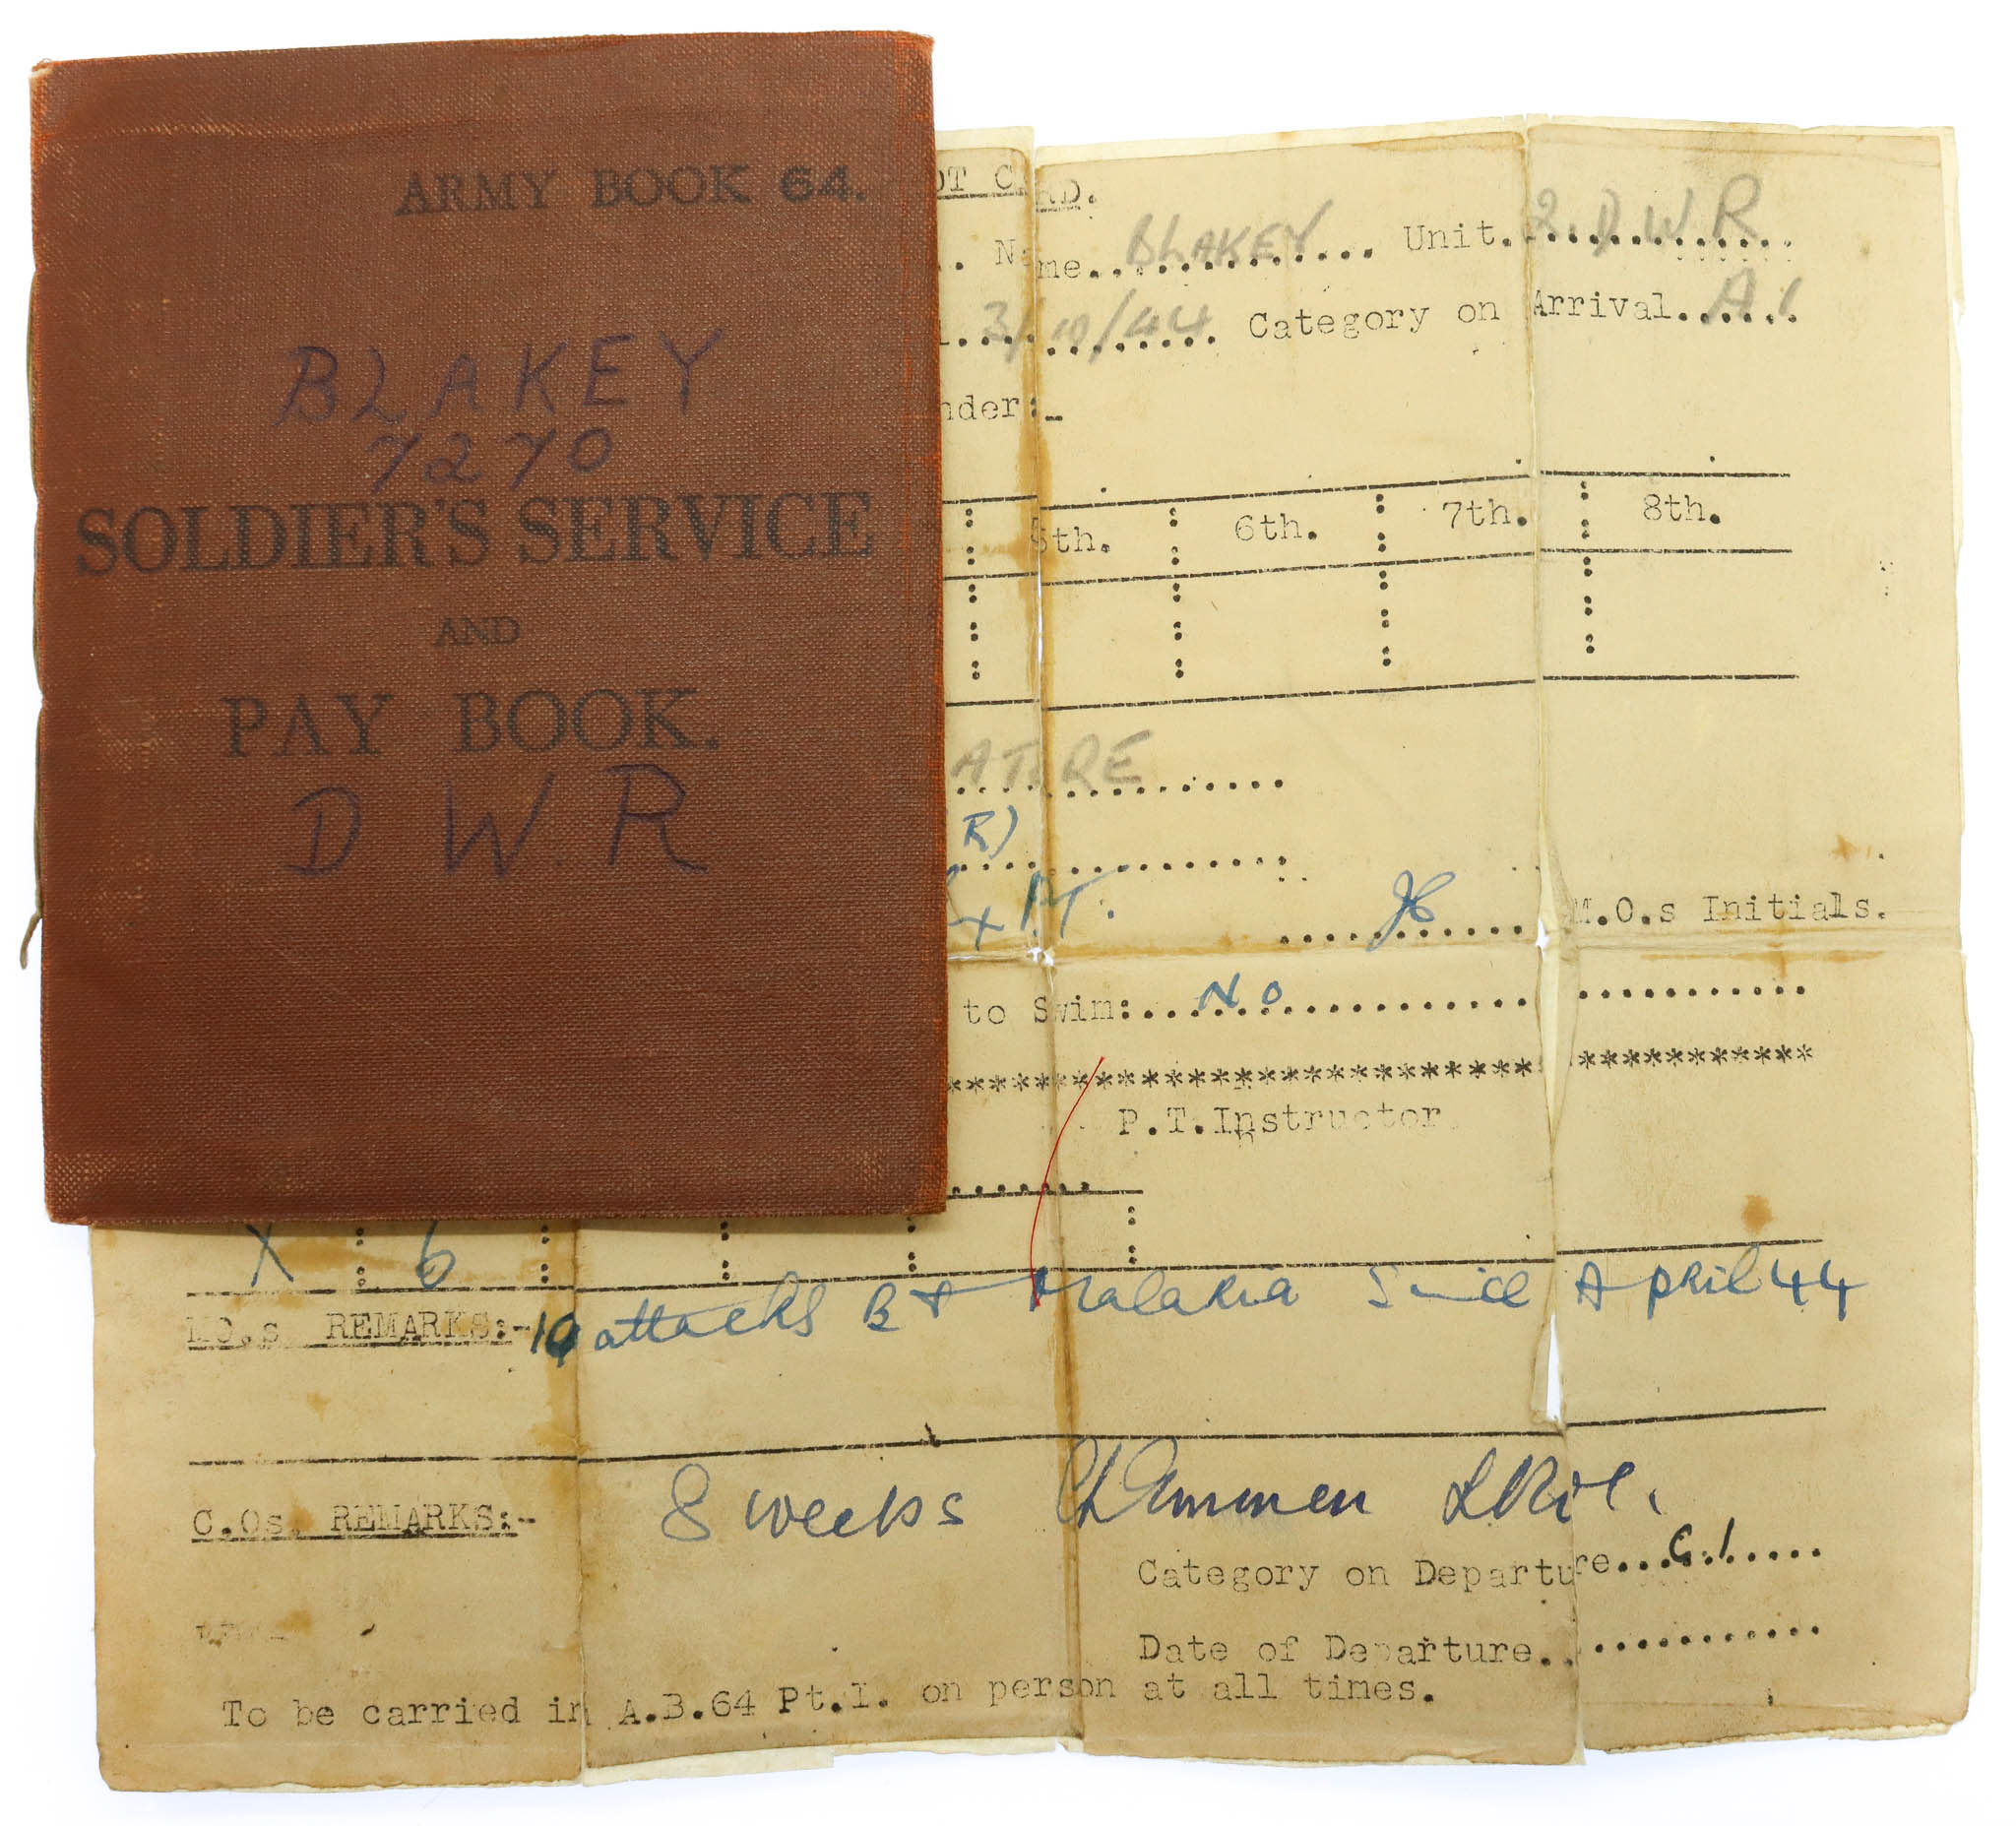 ARMY BOOK 64.
BLAKEY
7270
SOLDIER'S SERVICE
AND
PAY BOOK.
D W R
OT CARD.
.. Name.. BLAKEY ........ Unit. 2. D W R
3/10/44 Category on Arrival. A1
nder:-
5th. 6th. 7th. 8th.
ATURE
R)
x P.T. M.O.s Initials.
to Swim:... No
************************************
P.T.Instructor
X 6
M.O.s REMARKS:- 10 attacks BT Malaria Since April 44
C.Os. REMARKS:- 8 weeks
Category on Departure... C.1
Date of Departure..
To be carried in A.B.64 Pt.I. on person at all times.